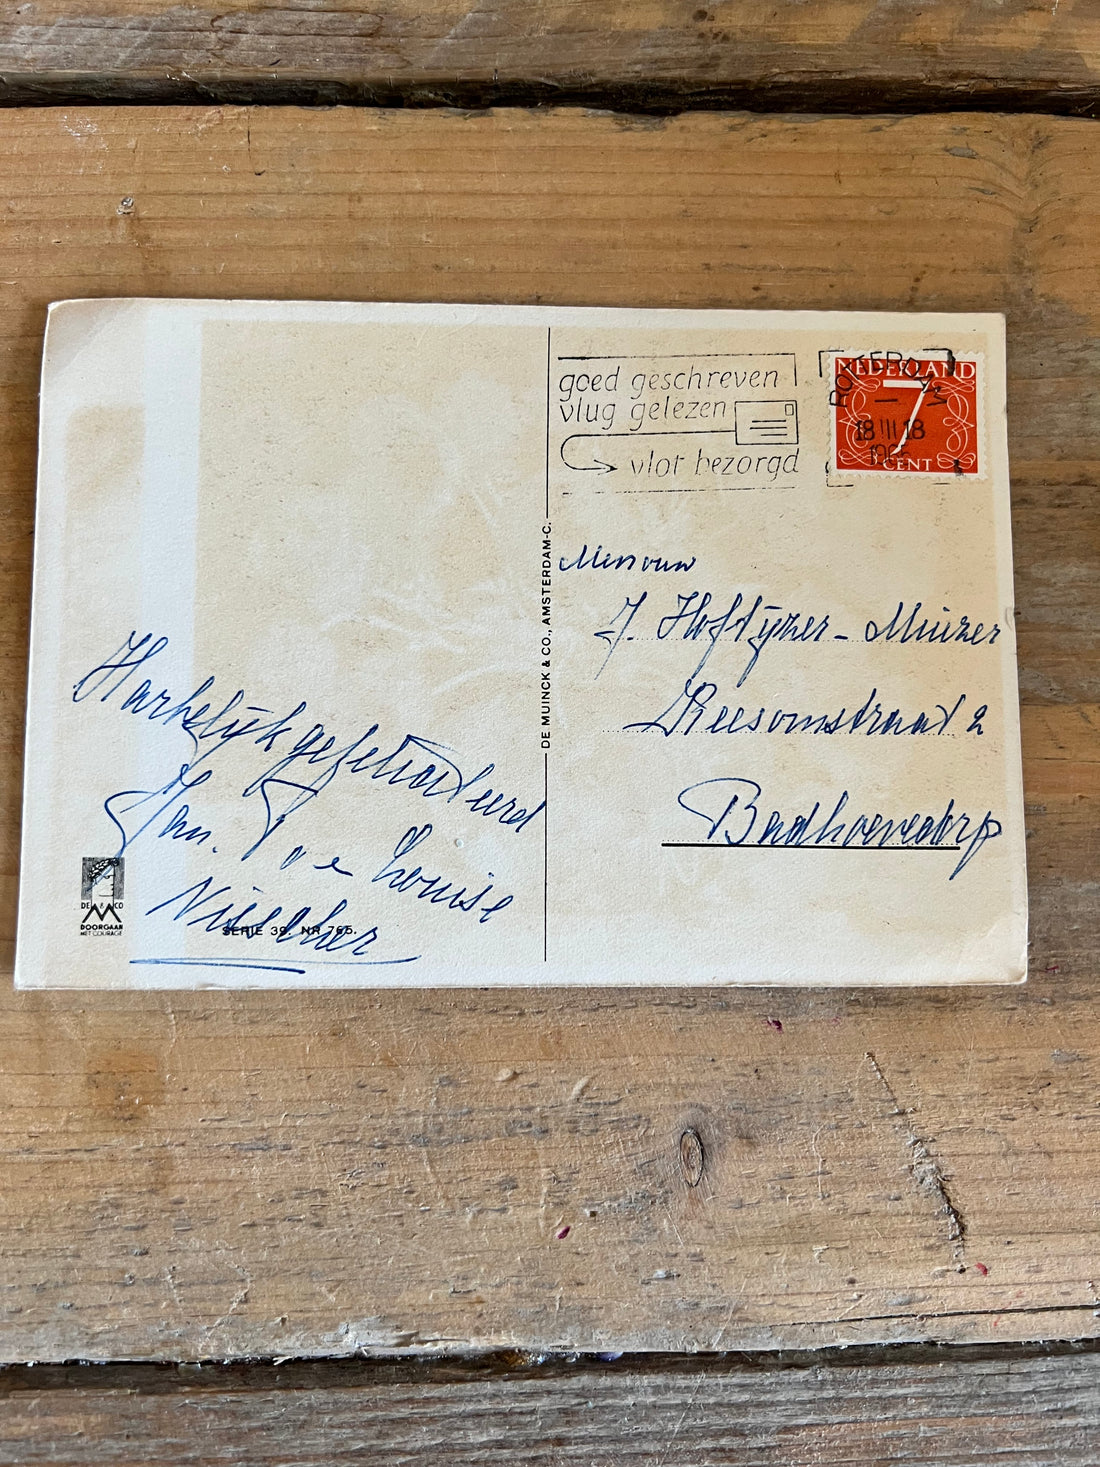 goed geschreven
vlug gelezen
vlot bezorgd
ROTTERDAM
18 III 18
NEDERLAND
7
CENT
Mevrouw
J. Hoftijzer - Muizer
straat 2
Badhoevedorp
DE MUINCK & CO., AMSTERDAM-C.
Hartelijk gefeliciteerd
Jan. T en Louise
Visscher
DE & CO
DOORGAAN
MET COURAGE
SERIE 39. NR 765.